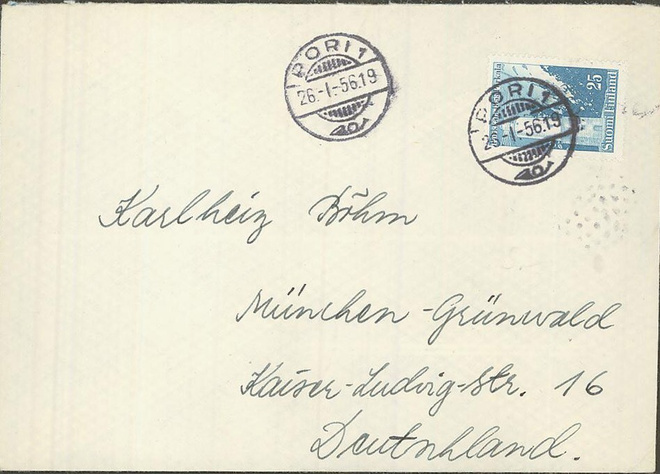 PORI 1
26.-I.-56.19
PORI 1
2 -I.-56.19
25
Suomi Finland
Karlheiz Böhm
München-Grünwald
Kaiser-Ludwig-str. 16
Deutnhland.